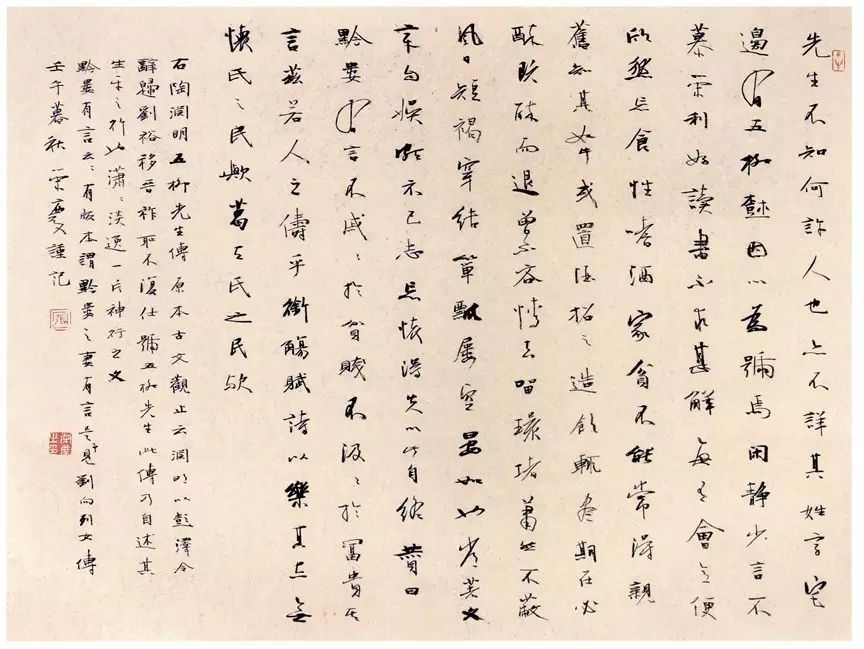 先生不知何許人也亦不詳其姓字宅
邊有五柳樹因以為號焉閑靜少言不
慕榮利好讀書不求甚解每有會意便
欣然忘食性嗜酒家貧不能常得親
舊知其如此或置酒招之造飲輒盡期在必
醉既醉而退曾不吝情去留環堵蕭然不蔽
風日短褐穿結簞瓢屢空晏如也常著文
章自娛頗示己志忘懷得失以此自終贊曰
黔婁有言不戚〻於貧賤不汲〻於富貴其
言茲若人之儔乎銜觴賦詩以樂其志無
懷氏之民歟葛天氏之民歟
右陶淵明五柳先生傳原本古文觀止云淵明以彭澤令
辭歸劉裕移晉祚恥不復仕號五柳先生此傳乃自述其
生平之行也瀟〻淡逸一片神行之文
黔婁有言云〻有版本謂黔婁之妻有言是見劉向列女傳
壬午暮秋謹記